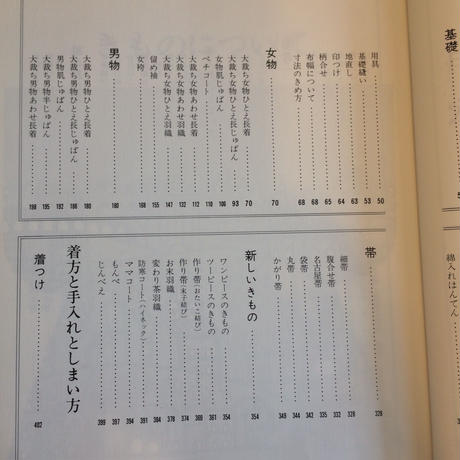 基礎
用具 50
基礎縫い 53
地直し 63
柄合せ 64
印つけ 64
布幅について 65
寸法のきめ方 68
女物 70
大裁ち女物ひとえ長着 70
大裁ち女物ひとえ長じゅばん 93
女物肌じゅばん 106
ペチコート 110
大裁ち女物あわせ長着 112
大裁ち女物あわせ羽織 132
大裁ち女物ひとえ羽織 147
留め袖 155
女袴 168
男物 180
大裁ち男物ひとえ長着 180
大裁ち男物ひとえ長じゅばん 186
男物肌じゅばん 192
大裁ち男物半じゅばん 195
大裁ち男物あわせ長着 198
綿入れはんてん
帯 328
細帯 328
腹合せ帯 332
名古屋帯 335
袋帯 342
丸帯 344
かがり帯 349
新しいきもの 354
ワンピースのきもの 354
ツーピースのきもの 361
作り帯(おたいこ結び) 369
作り帯(文子結び) 374
お末羽織 378
変わり茶羽織 384
防寒コート(ハイネック) 391
ママコート 394
もんぺ 397
じんべえ 399
着方と手入れとしまい方
着つけ 402